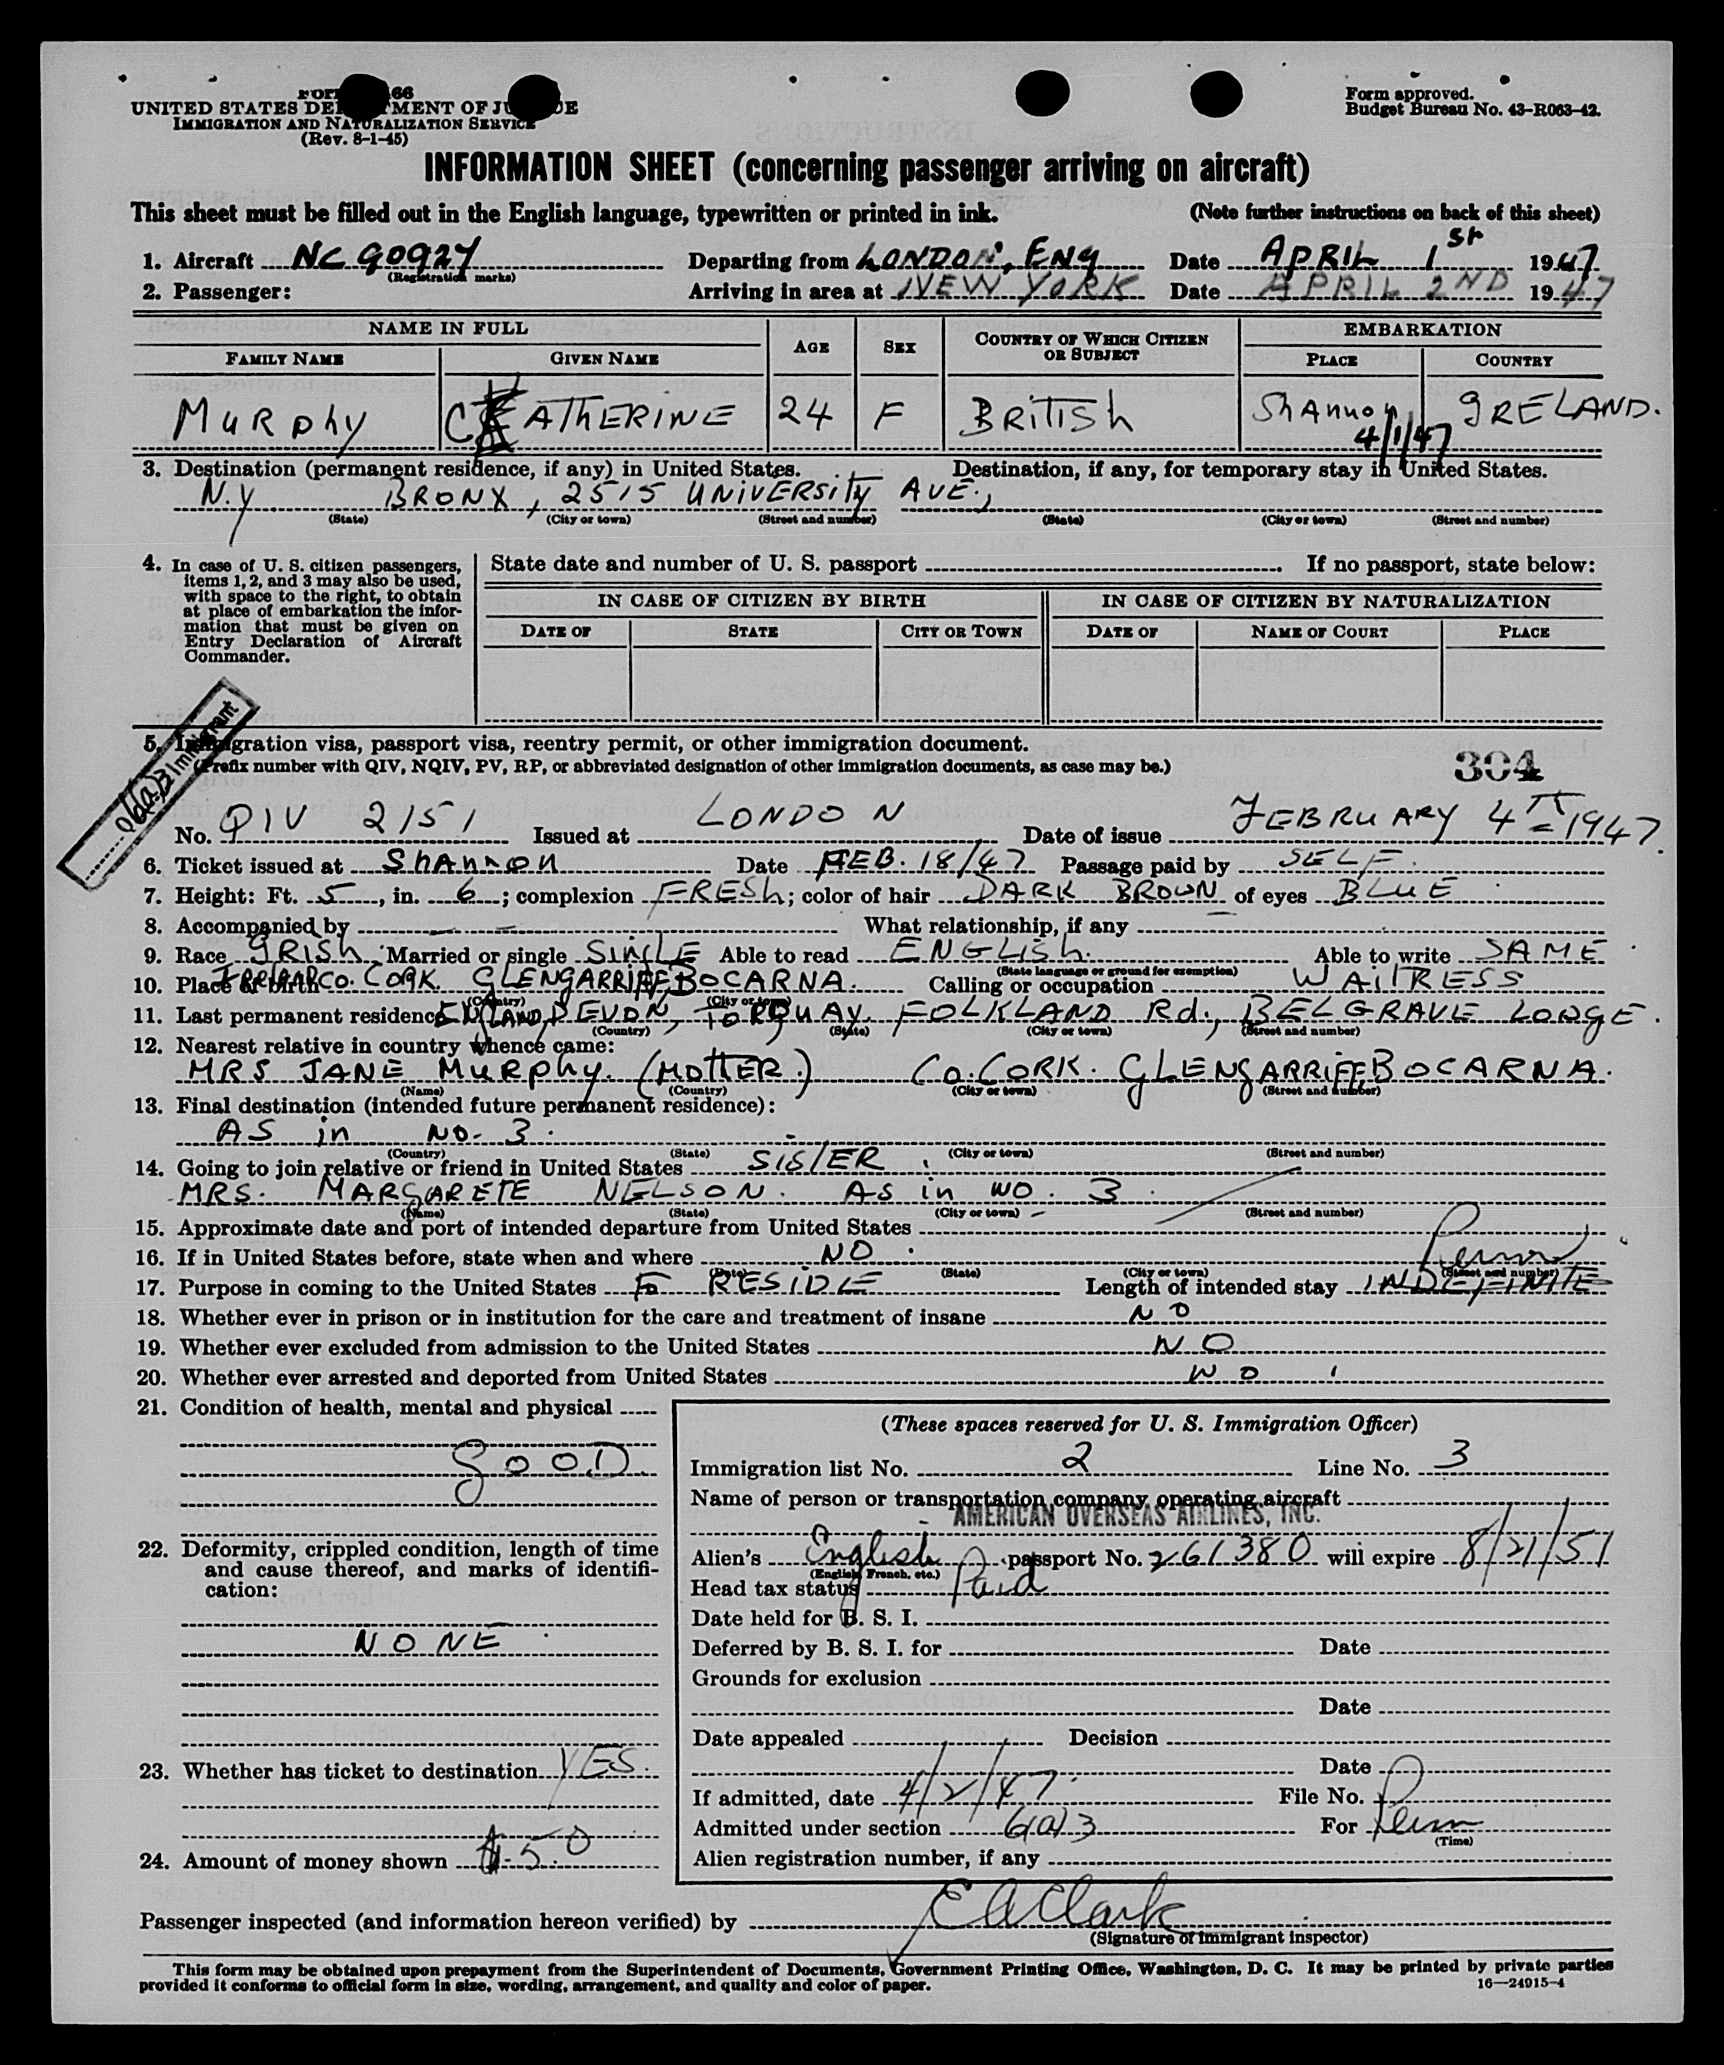 UNITED STATES DEPARTMENT OF JUSTICE
IMMIGRATION AND NATURALIZATION SERVICE
(Rev. 8-1-45)
Form approved.
Budget Bureau No. 43-R063-42.
INFORMATION SHEET (concerning passenger arriving on aircraft)
This sheet must be filled out in the English language, typewritten or printed in ink. (Note further instructions on back of this sheet)
1. Aircraft NC 90924 Departing from LONDON, ENG Date APRIL 1st 1947
(Registration marks)
2. Passenger: Arriving in area at NEW YORK Date APRIL 2ND 1947
NAME IN FULL AGE SEX COUNTRY OF WHICH CITIZEN OR SUBJECT EMBARKATION
FAMILY NAME GIVEN NAME PLACE COUNTRY
MURPHY CATHERINE 24 F BRITISH SHANNON IRELAND.
4/1/47
3. Destination (permanent residence, if any) in United States. Destination, if any, for temporary stay in United States.
N.Y BRONX, 2515 UNIVERSITY AVE.,
(State) (City or town) (Street and number) (State) (City or town) (Street and number)
4. In case of U. S. citizen passengers, items 1, 2, and 3 may also be used, with space to the right, to obtain at place of embarkation the information that must be given on Entry Declaration of Aircraft Commander.
State date and number of U. S. passport . If no passport, state below:
IN CASE OF CITIZEN BY BIRTH IN CASE OF CITIZEN BY NATURALIZATION
DATE OF STATE CITY OR TOWN DATE OF NAME OF COURT PLACE
6(a)3 Immigrant
5. Immigration visa, passport visa, reentry permit, or other immigration document.
(Prefix number with QIV, NQIV, PV, RP, or abbreviated designation of other immigration documents, as case may be.)
304
No. QIV 2151 Issued at LONDON Date of issue FEBRUARY 4TH 1947.
6. Ticket issued at SHANNON Date FEB. 18/47 Passage paid by SELF.
7. Height: Ft. 5, in. 6; complexion FRESH; color of hair DARK BROWN of eyes BLUE
8. Accompanied by — — What relationship, if any —
9. Race IRISH Married or single SINGLE Able to read ENGLISH. Able to write SAME
(State language or ground for exemption)
10. Place of birth IRELAND CO. CORK. GLENGARRIFF BOCARNA. Calling or occupation WAITRESS
(Country) (City or town)
11. Last permanent residence ENGLAND, DEVON, TORQUAY, FOLKLAND Rd., BELGRAVE LODGE.
(Country) (State) (City or town) (Street and number)
12. Nearest relative in country whence came:
MRS JANE MURPHY. (MOTTER.) CO. CORK. GLENGARRIFF BOCARNA.
(Name) (Country) (City or town) (Street and number)
13. Final destination (intended future permanent residence):
AS in NO. 3.
(Country) (State) (City or town) (Street and number)
14. Going to join relative or friend in United States SISTER.
MRS. MARGARETE NELSON. AS in NO. 3.
(Name) (State) (City or town) (Street and number)
15. Approximate date and port of intended departure from United States
16. If in United States before, state when and where NO.
(Date) (State) (City or town) (Street and number)
17. Purpose in coming to the United States TO RESIDE Length of intended stay INDEFINITE
18. Whether ever in prison or in institution for the care and treatment of insane NO
19. Whether ever excluded from admission to the United States NO
20. Whether ever arrested and deported from United States NO
21. Condition of health, mental and physical
GOOD.
22. Deformity, crippled condition, length of time and cause thereof, and marks of identification:
NONE
23. Whether has ticket to destination YES.
24. Amount of money shown $50
(These spaces reserved for U. S. Immigration Officer)
Immigration list No. 2 Line No. 3
Name of person or transportation company operating aircraft
AMERICAN OVERSEAS AIRLINES, INC.
Alien's English passport No. 261380 will expire 8/21/51
(English, French, etc.)
Head tax status Paid
Date held for B. S. I.
Deferred by B. S. I. for Date
Grounds for exclusion
Date
Date appealed Decision
Date
If admitted, date 4/2/47. File No.
Admitted under section 6(a)3 For Perm
(Time)
Alien registration number, if any
Passenger inspected (and information hereon verified) by E A Clark
(Signature of immigrant inspector)
This form may be obtained upon prepayment from the Superintendent of Documents, Government Printing Office, Washington, D. C. It may be printed by private parties
provided it conforms to official form in size, wording, arrangement, and quality and color of paper. 16—24915-4